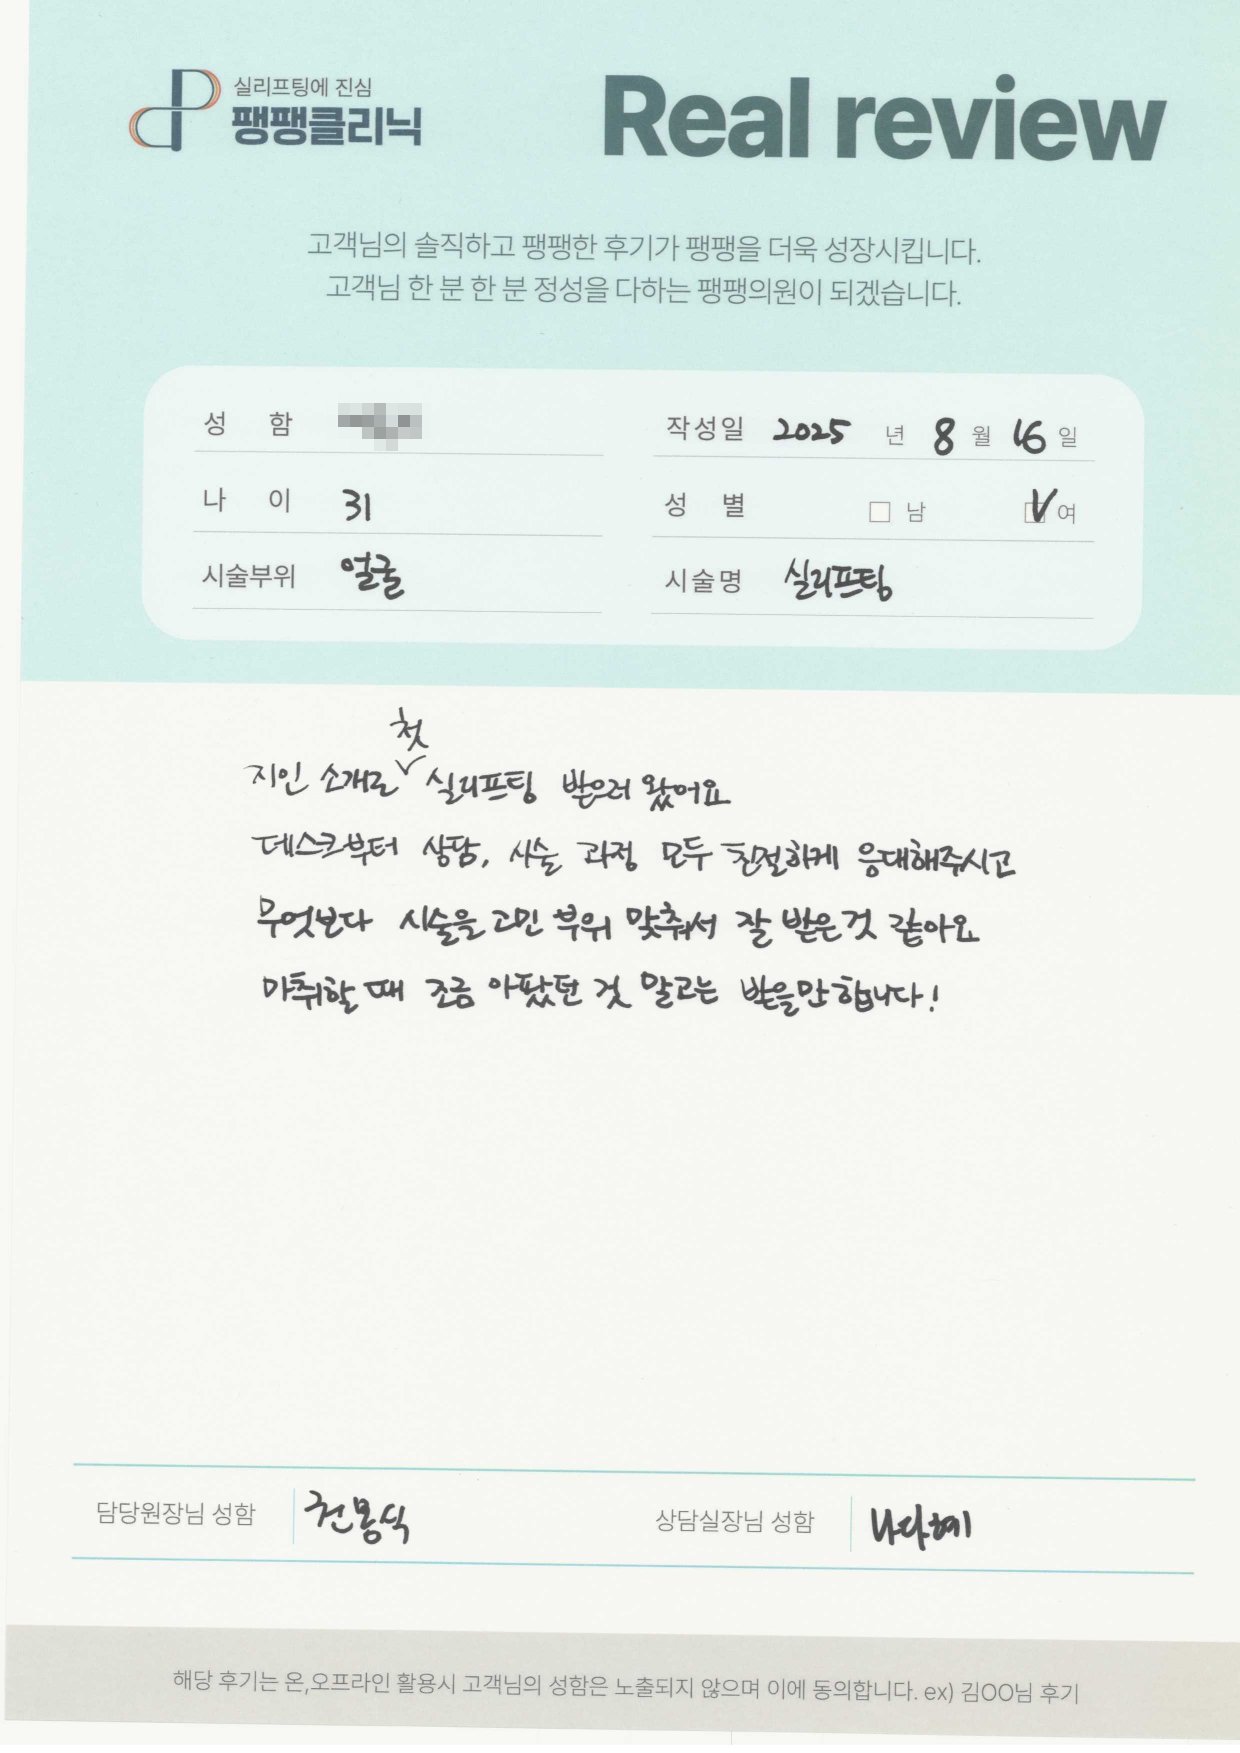 실리프팅에 진심
팽팽클리닉
Real review
고객님의 솔직하고 팽팽한 후기가 팽팽을 더욱 성장시킵니다.
고객님 한 분 한 분 정성을 다하는 팽팽의원이 되겠습니다.
성 함
작성일 2025 년 8 월 16 일
나 이 31
성 별 남 V 여
시술부위 얼굴
시술명 실리프팅
첫
지인 소개로 실리프팅 받으러 왔어요
데스크부터 상담, 시술 과정 모두 친절하게 응대해주시고
무엇보다 시술을 고민 부위 맞춰서 잘 받은것 같아요
마취할 때 조금 아팠던 것 말고는 받을만 합니다!
담당원장님 성함 전몽식
상담실장님 성함 나다혜
해당 후기는 온,오프라인 활용시 고객님의 성함은 노출되지 않으며 이에 동의합니다. ex) 김OO님 후기